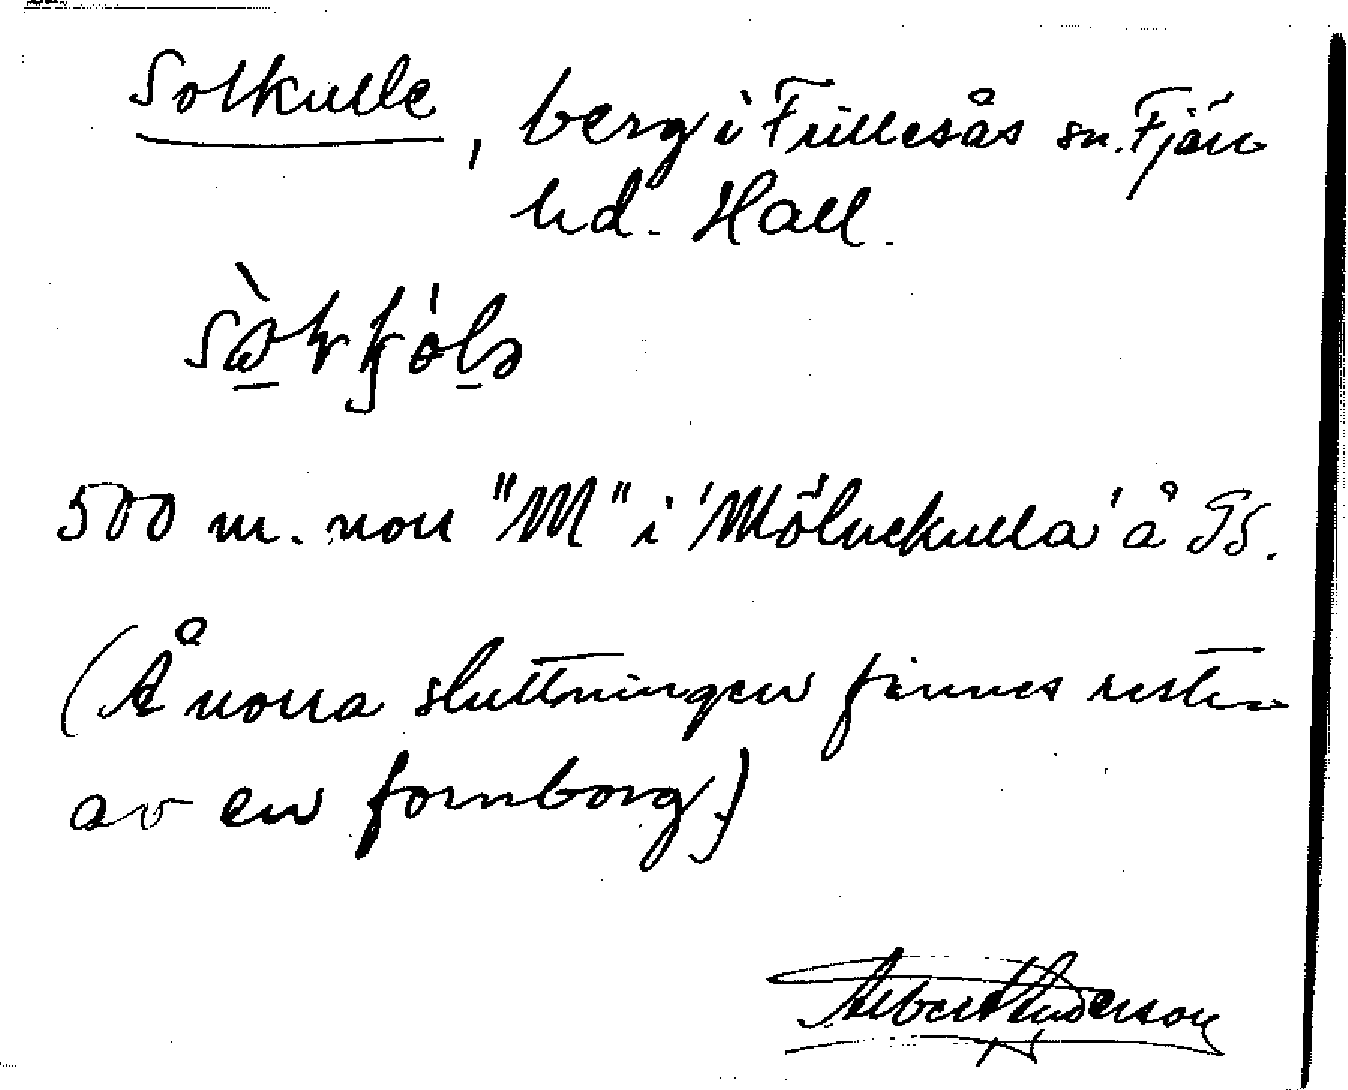 Solkulle, berg i Frillesås sn. Fjäre
hd. Hall.
500 m. norr "M" i 'Mölnekulla' å GS.
(Å norra sluttningen finnes rester
av en fornborg.)
Albert Anderson